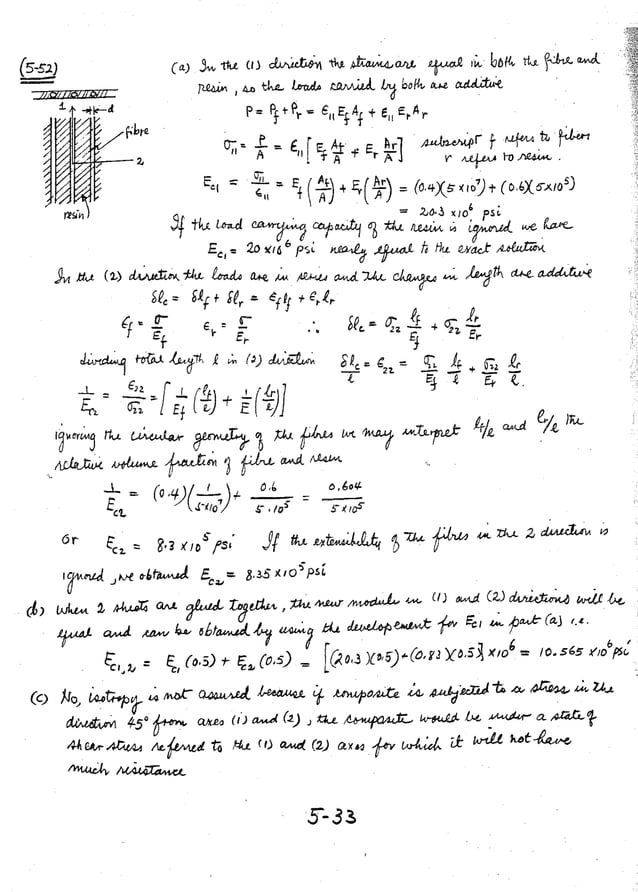 (5-52)
(a) In the (1) direction the strains are equal in both the fibre and
resin, so the loads carried by both are additive
1 d
fibre
2
resin
P = P_f + P_r = ϵ_11 E_f A_f + ϵ_11 E_r A_r
σ_11 = P/A = ϵ_11 [E_f A_f/A + E_r A_r/A] subscript f refers to fibers
r refers to resin.
E_c1 = σ_11/ϵ_11 = E_f (A_f/A) + E_r (A_r/A) = (0.4)(5 x 10^7) + (0.6)(5x10^5)
= 20.3 x10^6 psi
If the load carrying capacity of the resin is ignored we have
E_c1 = 20x10^6 psi nearly equal to the exact solution
In the (2) direction the loads are in series and the changes in length are additive
δl_c = δl_f + δl_r = ϵ_f l_f + ϵ_r l_r
ϵ_f = σ/E_f ϵ_r = σ/E_r ∴ δl_c = σ_22 l_f/E_f + σ_22 l_r/E_r
dividing total length l in (2) direction δl_c/l = ϵ_22 = σ_22/E_f l_f/l + σ_22/E_r l_r/l.
1/E_c2 = ϵ_22/σ_22 = [1/E_f (l_f/l) + 1/E (l_r/l)]
ignoring the circular geometry of the fibres we may interpret l_f/l and l_r/l the
relative volume fraction of fibre and resin
1/E_c2 = (0.4)(1/5x10^7) + 0.6/5.10^5 = 0.604/5x10^5
or E_c2 = 8.3 x 10^5 psi If the extensibility of the fibres in the 2 direction is
ignored, we obtained E_c2 = 8.35 x 10^5 psi
(b) when 2 sheets are glued together, the new module in (1) and (2) directions will be
equal and can be obtained by using the developement for E_c1 in part (a) i.e.
E_c1,2 = E_c1 (0.5) + E_c2 (0.5) = [(20.3)(0.5)+(0.83)(0.5)] x10^6 = 10.565 x10^6 psi
(c) No, isotropy is not assured because if composite is subjected to a stress in the
direction 45° from axes (1) and (2), the composite would be under a state of
shear stress referred to the (1) and (2) axes for which it will not have
much resistance
5-33